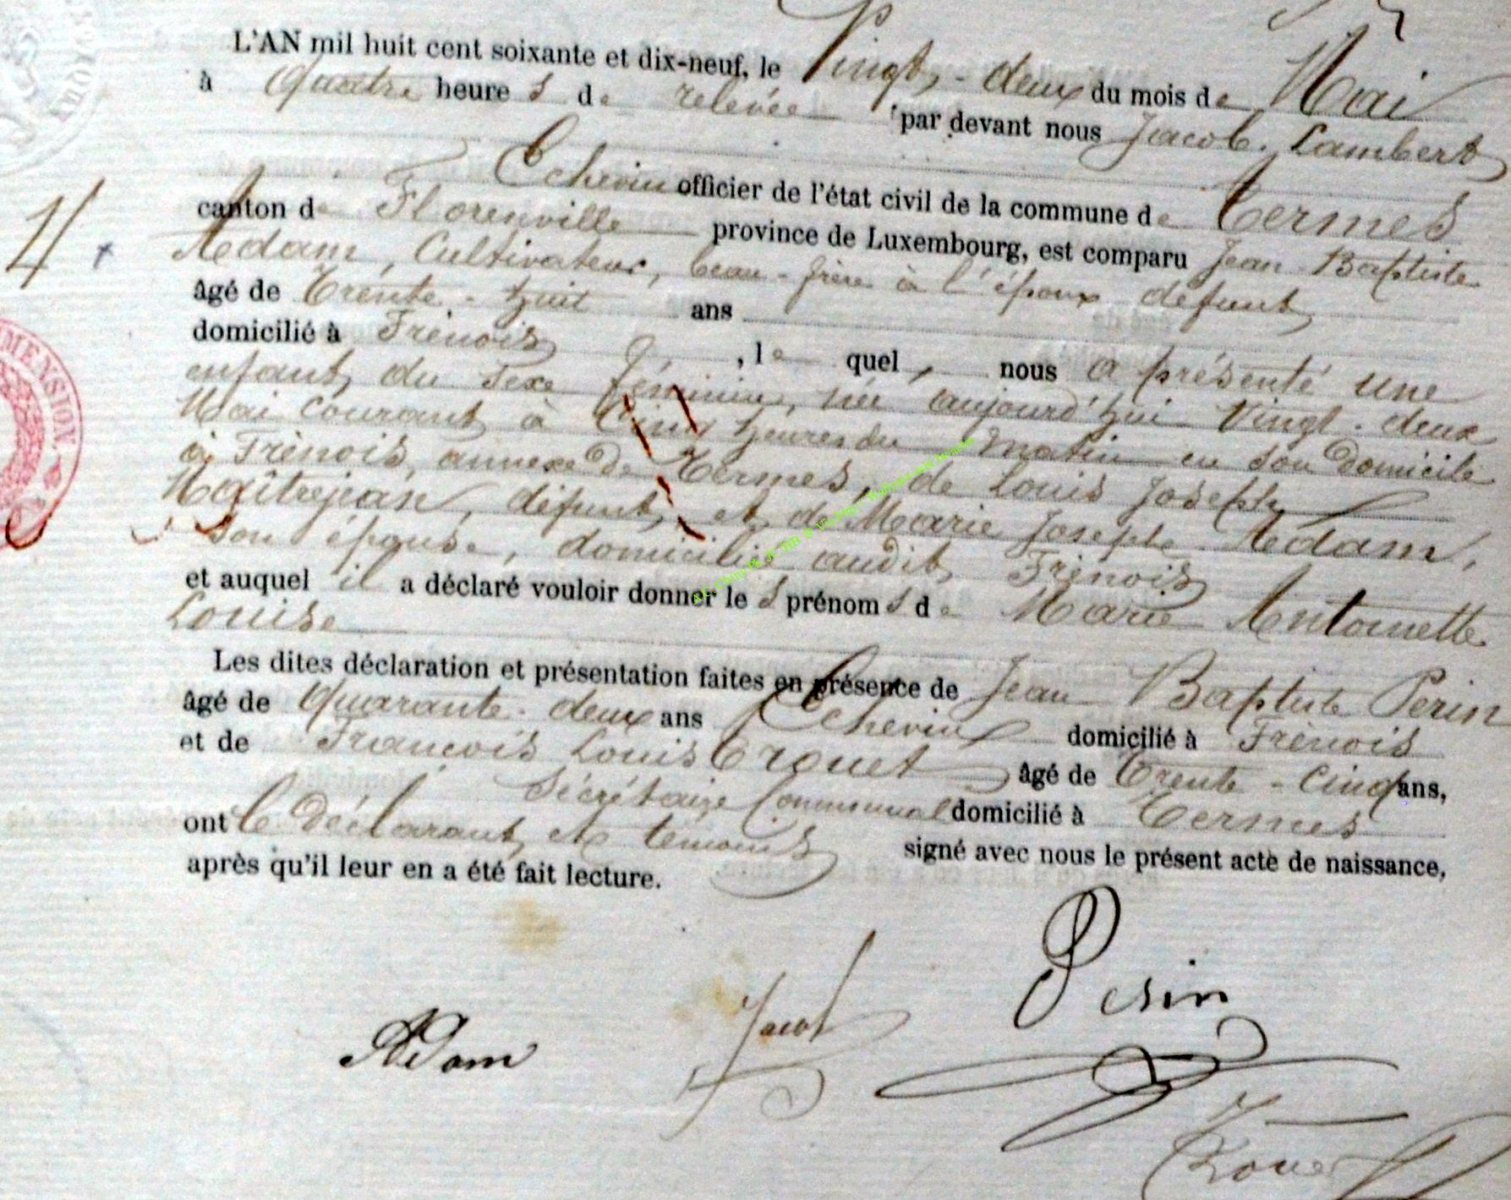 L'AN mil huit cent soixante et dix-neuf, le Vingt-deux du mois de Mai
à Quatre heures de relevée par devant nous Jacob. Lambert
Echevin officier de l'état civil de la commune de Termes
canton de Florenville province de Luxembourg, est comparu Jean-Baptiste
Adam, Cultivateur, beau-frère à l'époux défunt
âgé de Trente-huit ans
domicilié à Frènois, le quel, nous a présenté une
enfant du sexe féminin, née aujourd'hui Vingt-deux
Mai courant à Cinq heures du matin en son domicile
à Frènois, annexe De Termes, de Louis Joseph
Maîtrejean, défunt, et de Marie Joseph Adam,
son épouse, domiciliée audit Frènois
et auquel il a déclaré vouloir donner les prénoms de Marie Antoinette
Louise
Les dites déclaration et présentation faites en présence de Jean Baptiste Perin
âgé de Quarante-deux ans Echevin domicilié à Frènois
et de François Louis Trouet âgé de Trente-Cinq ans,
Sécrétaire Communal domicilié à Termes
ont le Déclarant et temoins signé avec nous le présent acte de naissance,
après qu'il leur en a été fait lecture.
4
MENSION.
Perin
Jacob
Adam